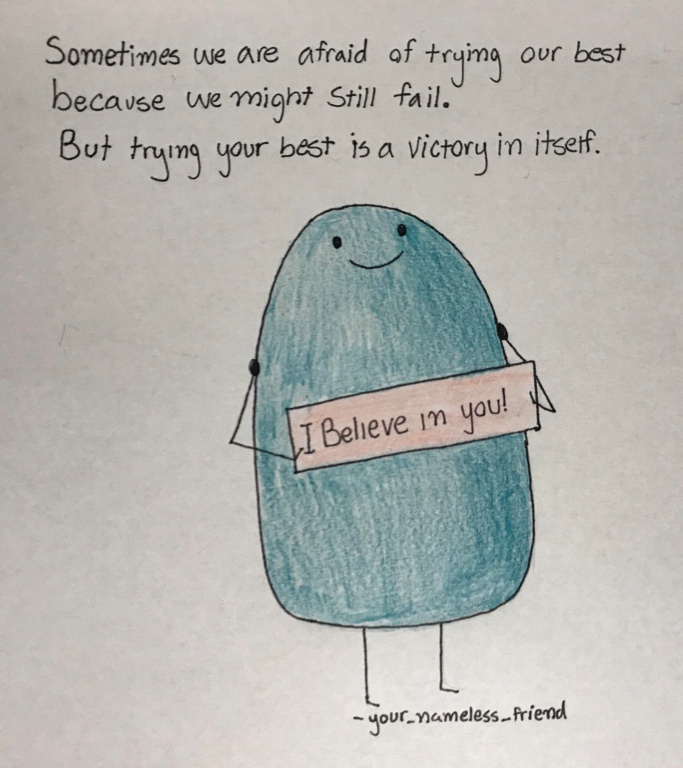 Sometimes we are afraid of trying our best
because we might still fail.
But trying your best is a victory in itself.
I Believe in you!
~your_nameless_friend